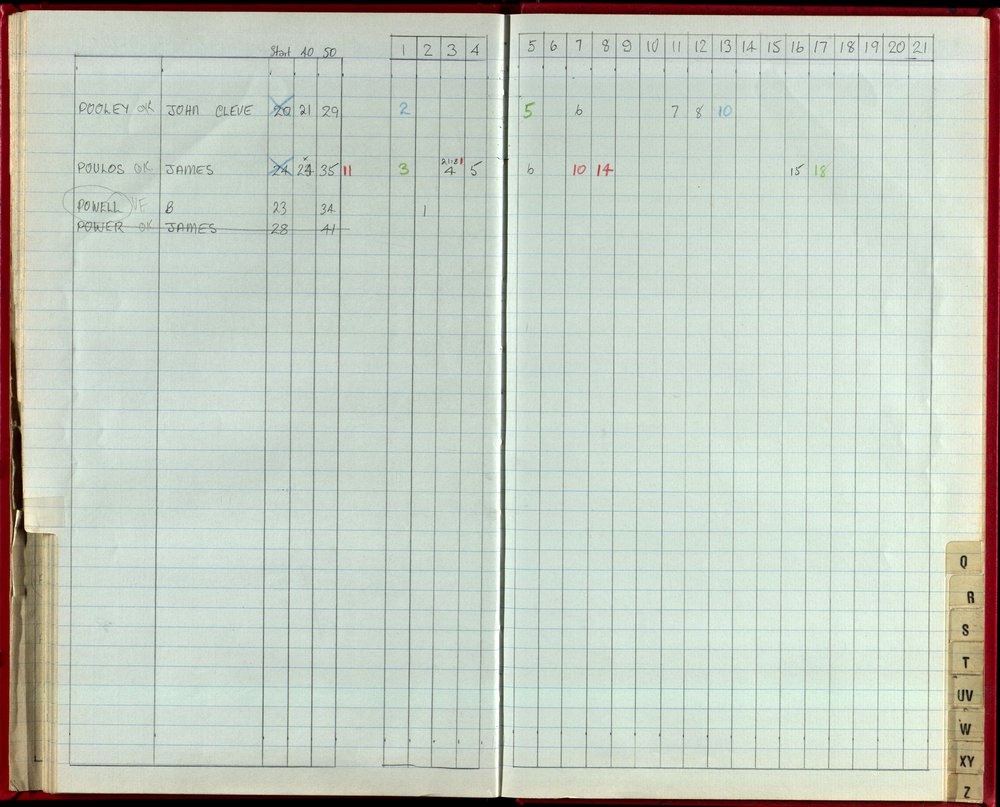 Start 40 50 1 2 3 4 5 6 7 8 9 10 11 12 13 14 15 16 17 18 19 20 21
POOLEY OK JOHN CLEVE 20 21 29 2 5 6 7 8 10
POULOS OK JAMES 24 24 35 11 3 4 5 6 10 14 15 18
POWELL VF B 23 34 1
POWER OK JAMES 28 41
Q
R
S
T
UV
W
XY
Z